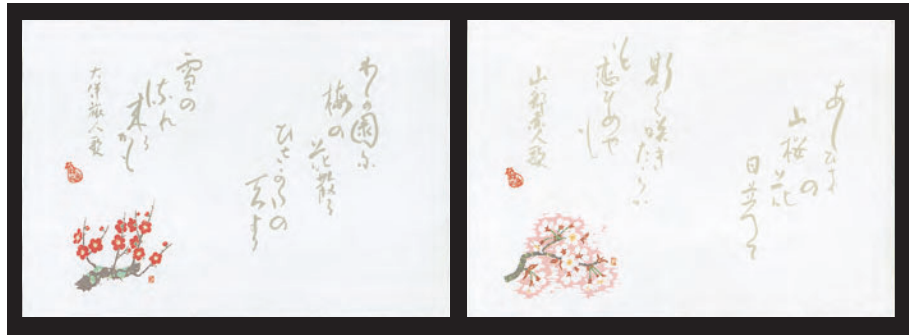 わが園に
梅の花散る
ひさかたの
天より
雪の
流れ
来るかも
大伴旅人歌
あしひき
の
山桜花
日並べて
斯く咲きたらば
いと
恋ひめや
も
山部赤人歌